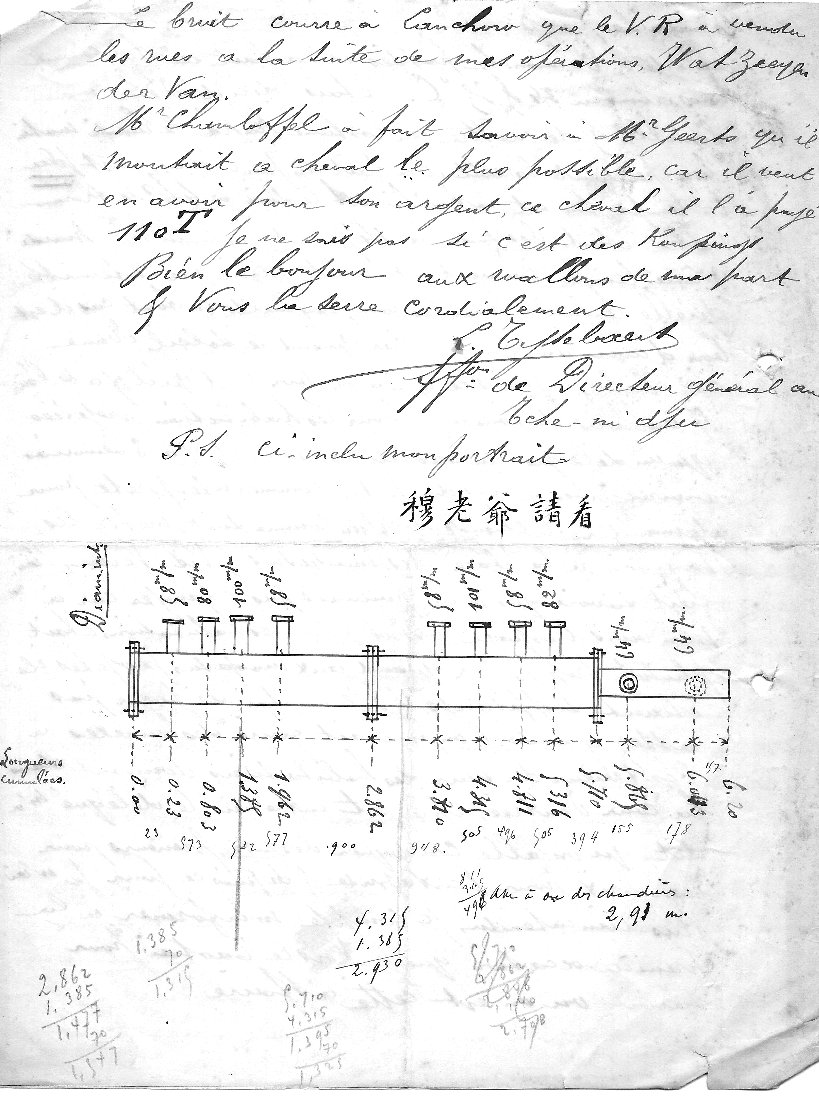 Le bruit courre à Lanchow que le V.R à vendu
les rues a la suite de mes opérations, Wat zeeyen
der Van.
Mr Chanloffel à fait savoir à Mr Geerts qu'il
montrait a cheval le plus possible, car il veut
en avoir pour son argent, ce cheval il l'à payé
110 T je ne sais pas si c'est des Koupings
Bien le bonjour aux wallons de ma part
& Vous la serre cordialement.
L. Tysebaert
ffon de Directeur général au
Tche-ni dju
P.S. ci-inclu mon portrait
穆老爺請看
Diamint.
85 m/m 80 m/m 100 m/m 58 m/m 85 m/m 101 m/m 85 m/m 82 m/m 64 m/m 64 m/m
Longueurs
cumulées.
0.00 0.23 0.803 1.385 1.962 2.862 3.810 4.315 4.811 5.316 5.710 5.865 6.20
23 573 577 900 948. 505 496 505 394 155 178 117.
Axe à axe des chaudières:
2,93 m.
4.315
1.385
2.930
1.385
70
1,315
2,862
1.385
1,477
70
1,547
5.710
4.315
1.395
70
1,325